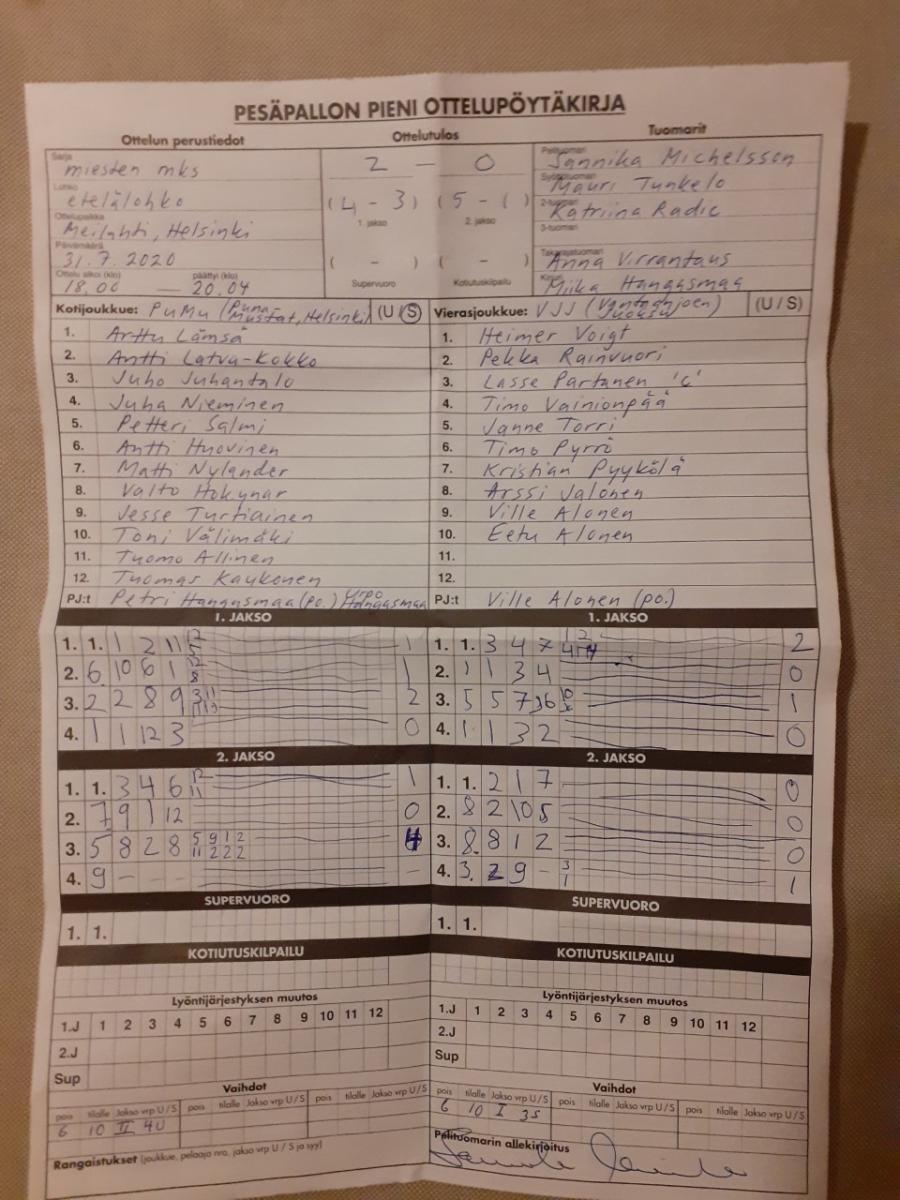 PESÄPALLON PIENI OTTELUPÖYTÄKIRJA
Ottelun perustiedot Ottelutulos Tuomarit
Sarja
miesten mks
Lohko
etelälohko
Ottelupaikka
Meilahti, Helsinki
Päivämäärä
31.7.2020
Ottelu alkoi (klo) päättyi (klo)
18.00 — 20.04
2 — 0
(4 - 3) (5 - 1)
1. jakso 2. jakso
( - ) ( - )
Supervuoro Kotiutuskilpailu
Pelituomari
Jannika Michelsson
Syöttötuomari
Mauri Tunkelo
2-tuomari
Katriina Radic
3-tuomari
Takarajatuomari
Anna Virrantaus
Kirjuri
Miika Hangasmaa
Kotijoukkue: PuMu (Puna-Mustat, Helsinki) (U / S)
1. Arttu Lämsä
2. Antti Latva-Kokko
3. Juho Juhantalo
4. Juha Nieminen
5. Petteri Salmi
6. Antti Huovinen
7. Matti Nylander
8. Valto Hokynar
9. Jesse Turtiainen
10. Toni Välimäki
11. Tuomo Allinen
12. Tuomas Kaukonen
PJ:t Petri Hangasmaa (po.) Urpo Hangasmaa
Vierasjoukkue: VJJ (Vantaanjoen Juoksu) (U / S)
1. Heimer Voigt
2. Pekka Rainvuori
3. Lasse Partanen 'c'
4. Timo Vainionpää
5. Janne Torri
6. Timo Pyrrö
7. Kristian Pyykölä
8. Arssi Jalonen
9. Ville Alonen
10. Eetu Alonen
11.
12.
PJ:t Ville Alonen (po.)
1. JAKSO
1. 1. 1 2 11 1
2. 6 10 6 1 12 8 1
3. 2 2 8 9 2
4. 1 1 12 3 0
2. JAKSO
1. 1. 3 4 6 12 11 1
2. 7 9 1 12 0
3. 5 8 2 8 5 9 1 2 11 2 2 2 4
4. 9 - - - -
SUPERVUORO
1. 1.
KOTIUTUSKILPAILU
Lyöntijärjestyksen muutos
1.J 1 2 3 4 5 6 7 8 9 10 11 12
2.J
Sup
Vaihdot
pois tilalle Jakso vrp U / S pois tilalle Jakso vrp U / S pois tilalle Jakso vrp U / S
6 10 II 4U
Rangaistukset (joukkue, pelaaja nro, jakso vrp U / S ja syy)
1. JAKSO
1. 1. 3 4 7 2
2. 1 1 3 4 0
3. 5 5 7 1
4. 1 1 3 2 0
2. JAKSO
1. 1. 2 1 7 0
2. 8 2 10 5 0
3. 8 8 1 2 0
4. 3 2 9 - 3 1 1
SUPERVUORO
1. 1.
KOTIUTUSKILPAILU
Lyöntijärjestyksen muutos
1.J 1 2 3 4 5 6 7 8 9 10 11 12
2.J
Sup
Vaihdot
pois tilalle Jakso vrp U / S pois tilalle Jakso vrp U / S pois tilalle Jakso vrp U / S
6 10 I 3S
Pelituomarin allekirjoitus